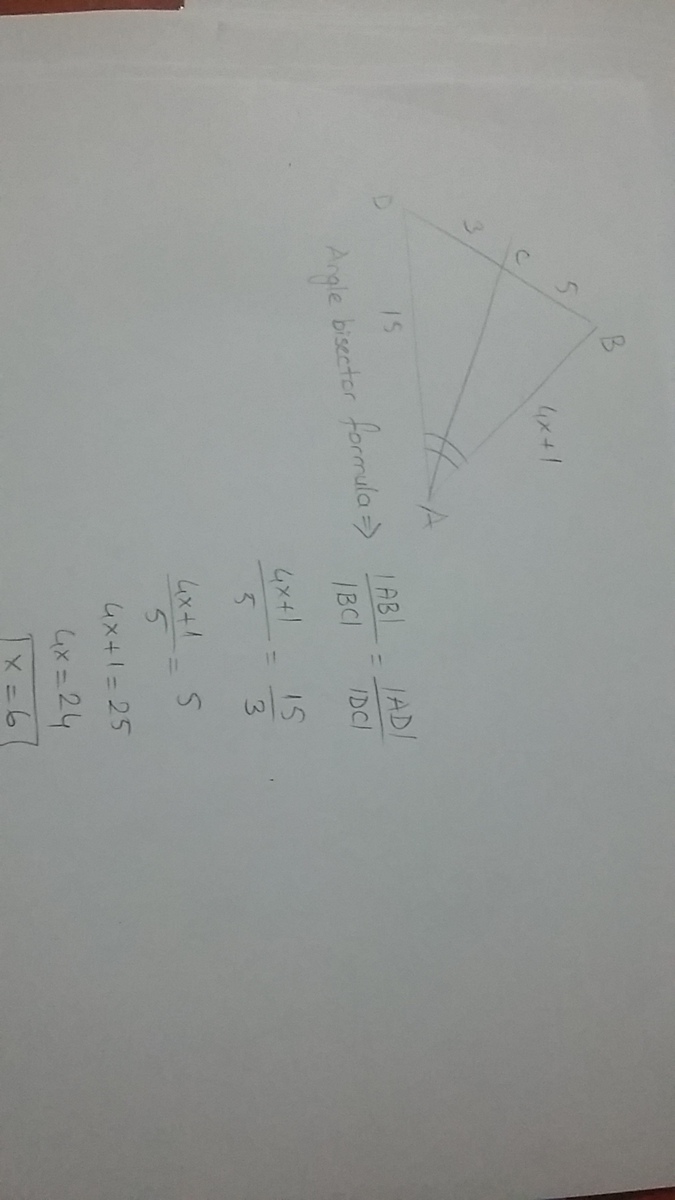 B
5
C
3
D
4x+1
15
A
Angle bisector formula => |AB|/|BC| = |AD|/|DC|
4x+1/5 = 15/3
4x+1/5 = 5
4x+1=25
4x=24
x=6